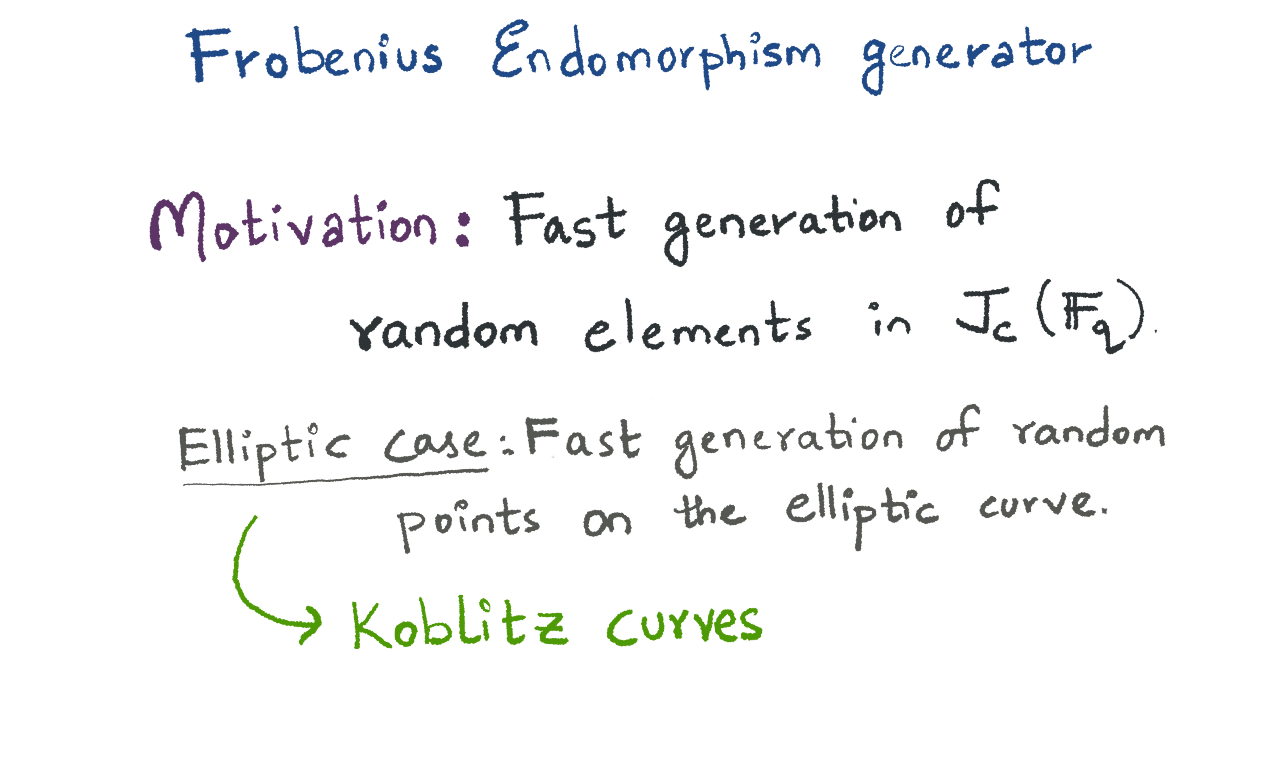 Frobenius Endomorphism generator
Motivation: Fast generation of
random elements in J_c (𝔽_q).
Elliptic case: Fast generation of random
points on the elliptic curve.
Koblitz curves